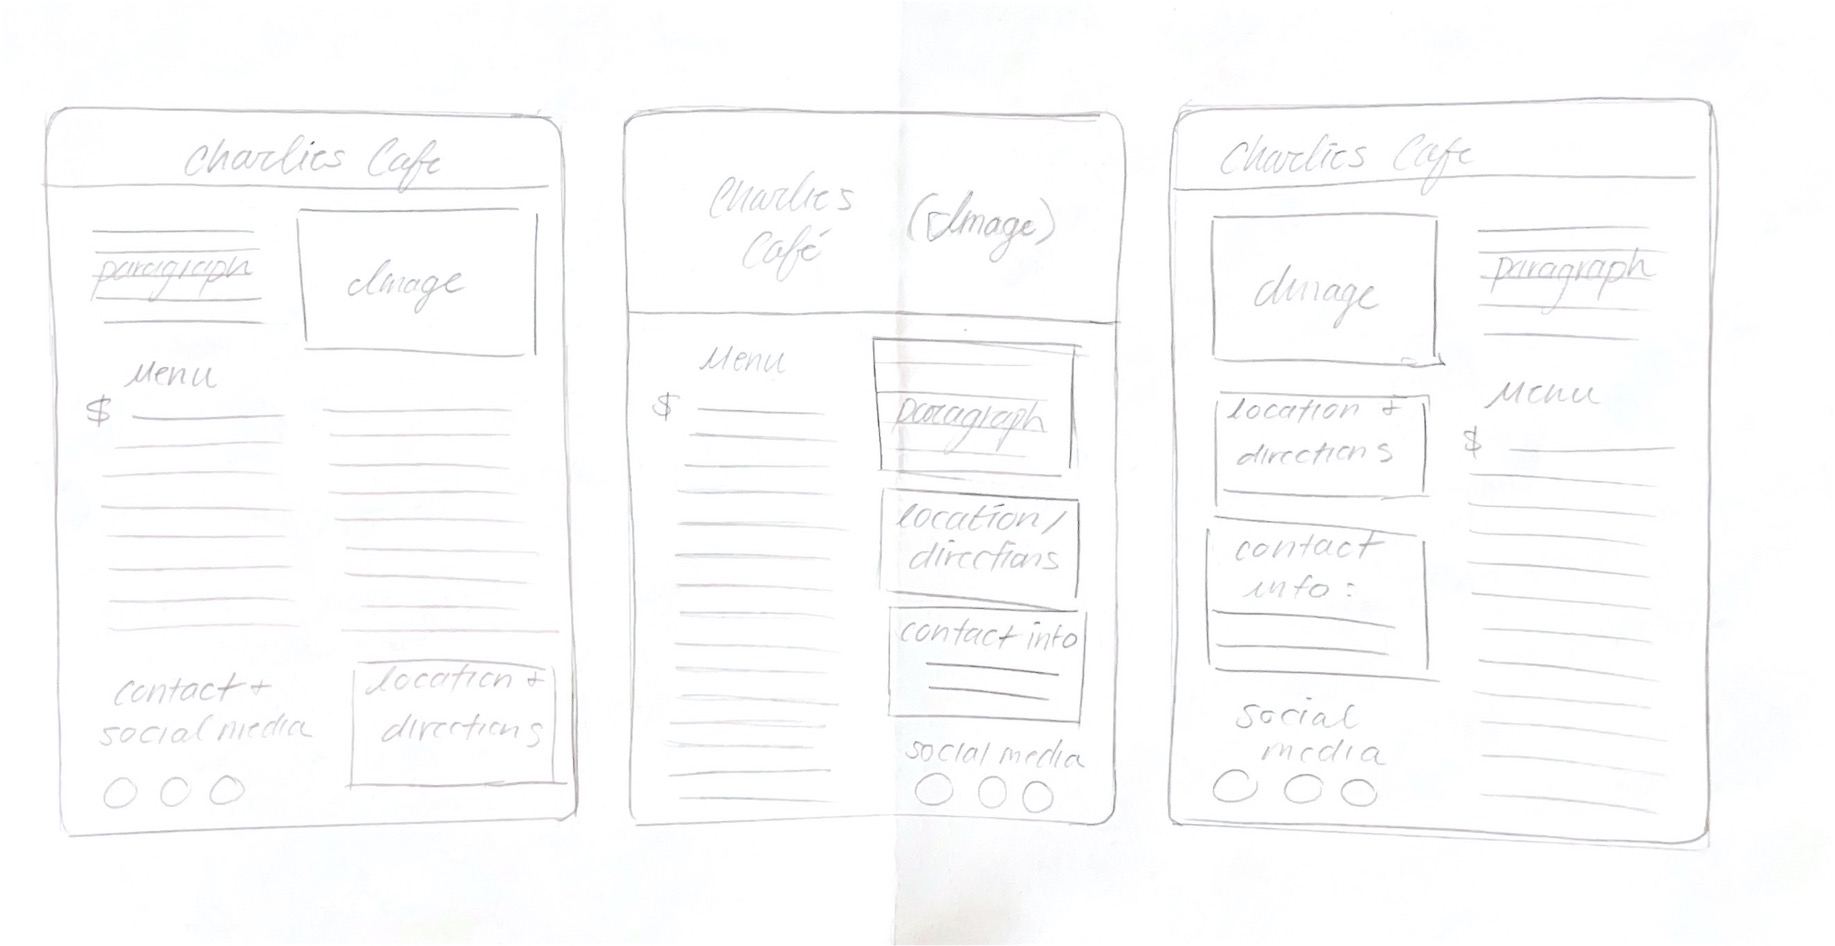 Charlies Cafe
paragraph
Image
Menu
$
contact +
social media
location +
directions
Charlies
Café
(Image)
Menu
$
paragraph
location/
directions
contact info
social media
Charlies Cafe
Image
paragraph
location +
directions
Menu
$
contact
info:
social
media